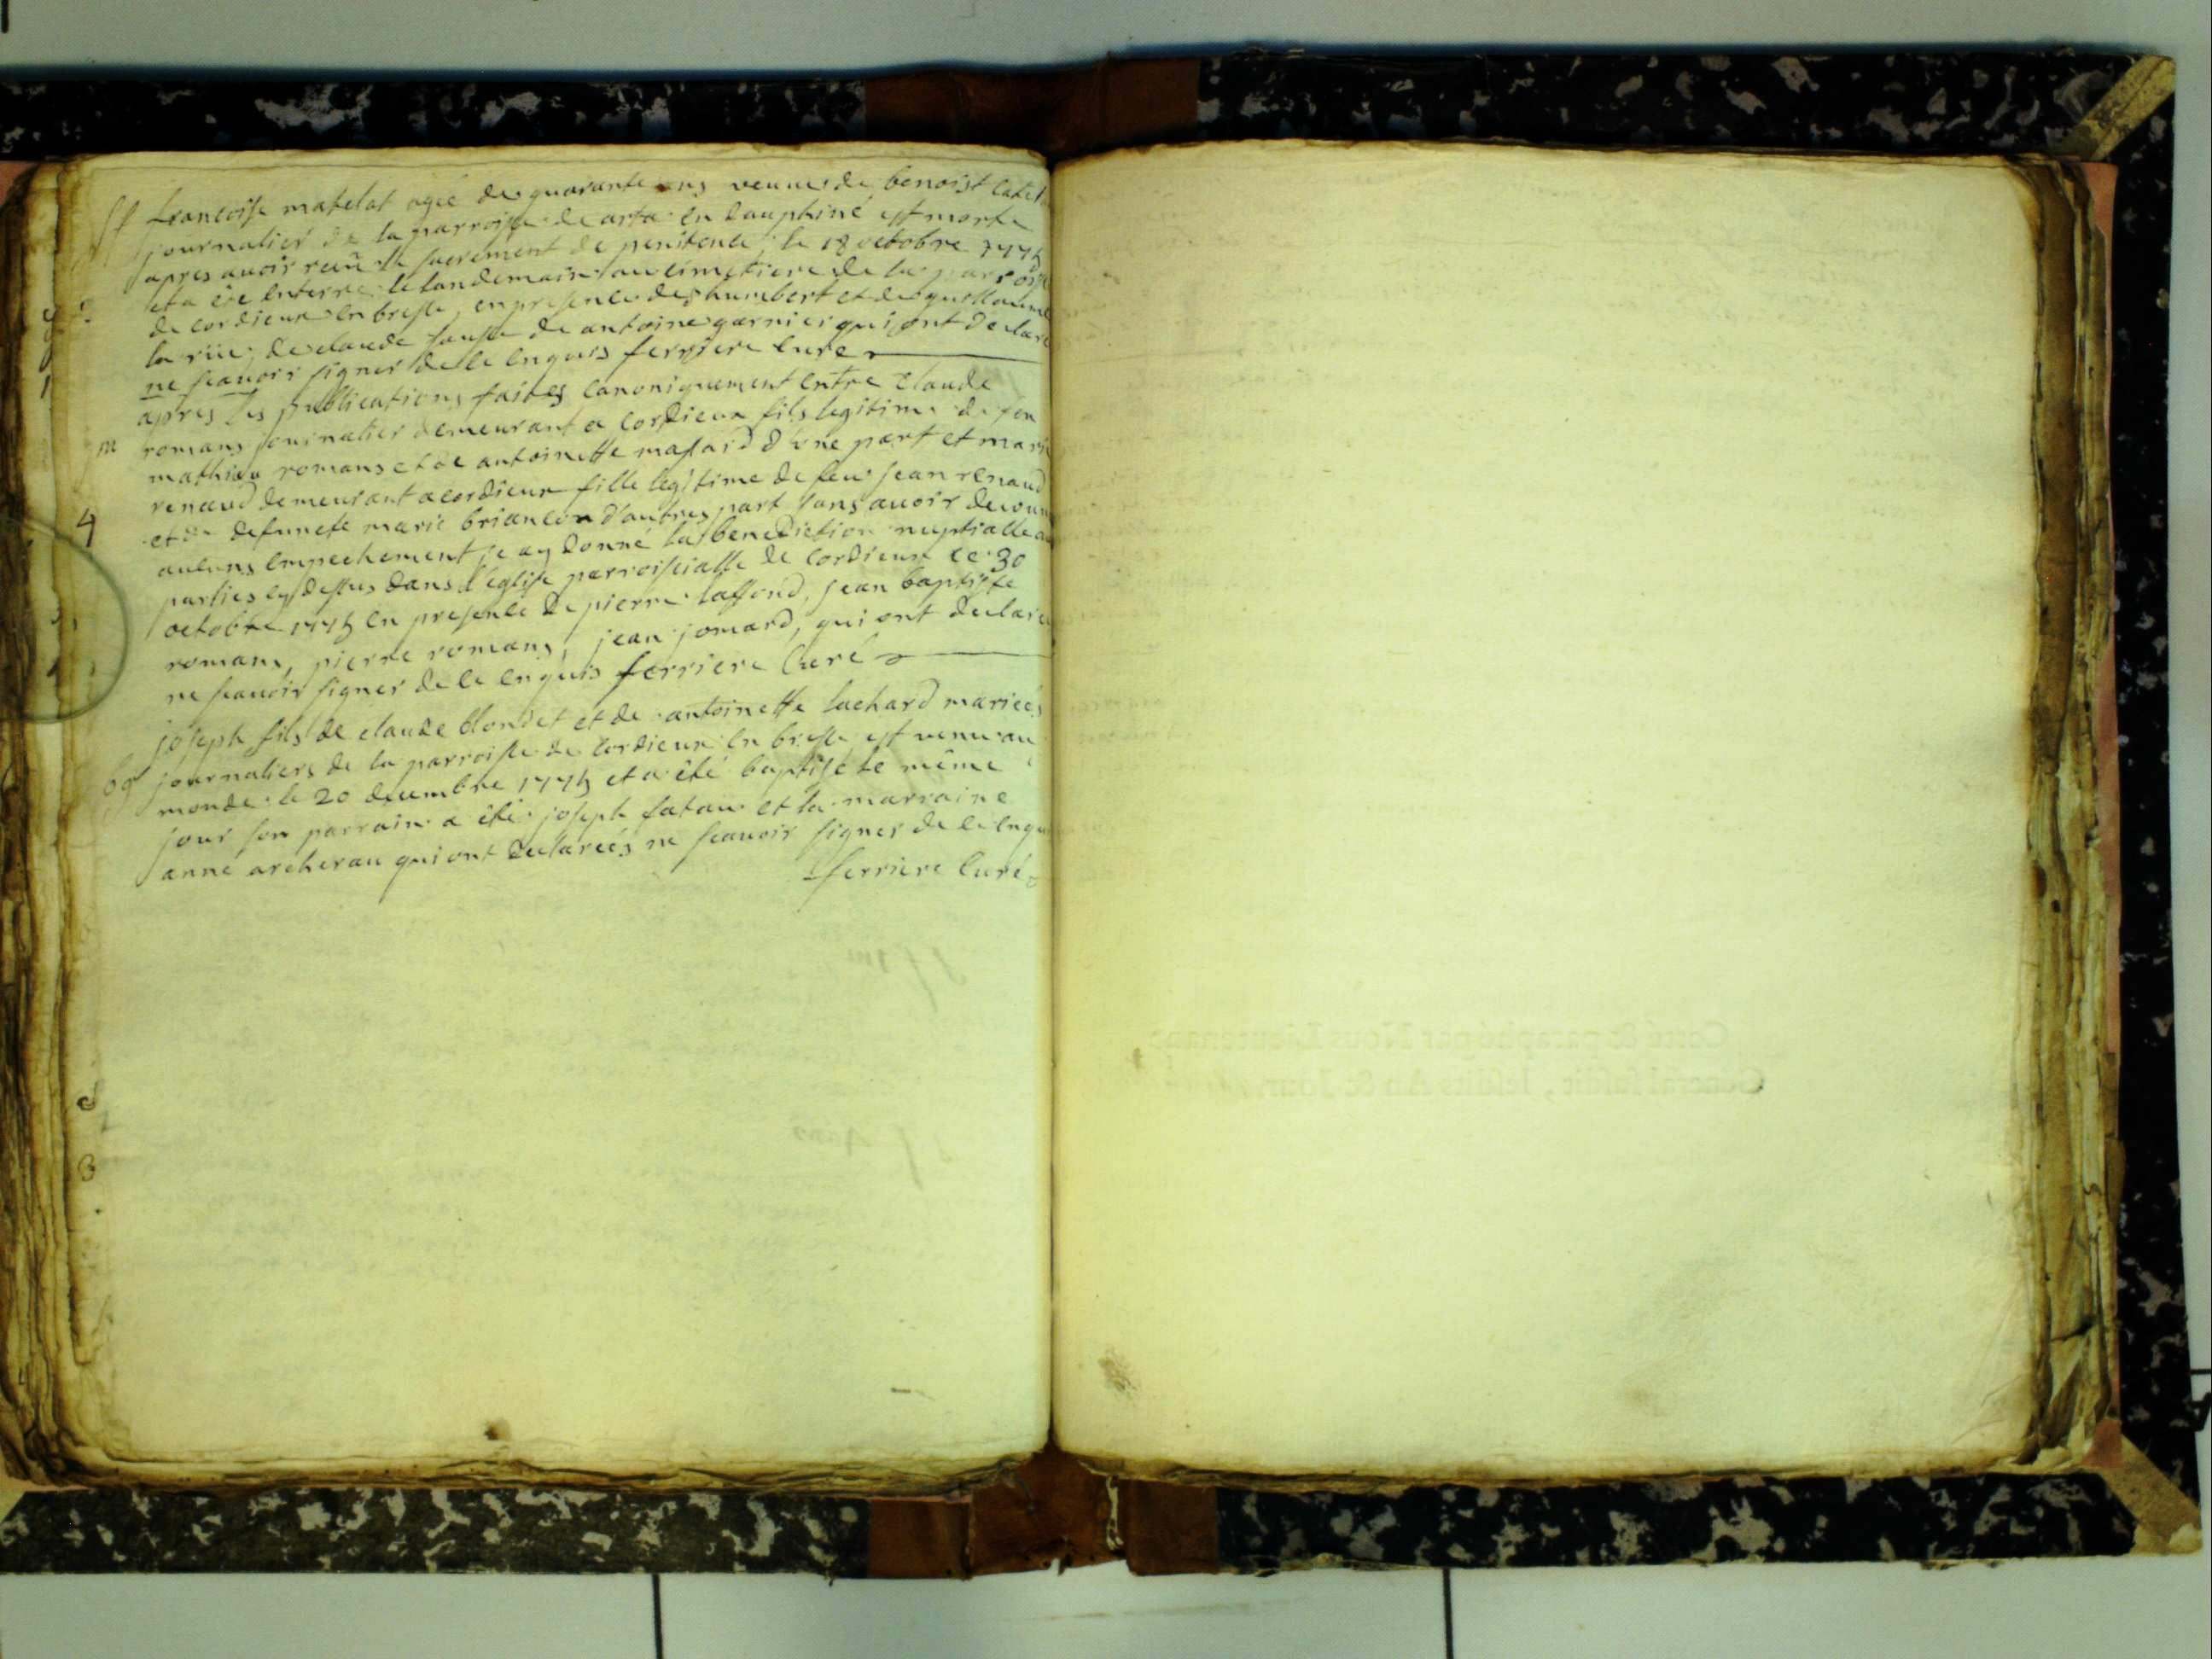 Sp francoise matelat agée de quarante ans veuve de benoist
journalier de la parroisse de arta en dauphiné est morte
apres avoir reçu le sacrement de penitence, le 18 octobre 1775
et a été enterré le landemain au cimetiere de la parroisse
de cordieux en bresse, en presence de humbert et de guillaume
la rue, de claude de antoine garnier qui ont declaré
ne scavoir signer de ce enquis ferriere curé
apres les publications faites canoniquement entre claude
m romans journalier demeurant a cordieux fils legitime de feu
mathieu romans et de antoinette masard d'une part et marie
renaud demeurant a cordieux fille legitime de feu jean renaud
et de defuncte marie briancon d'autres part sans avoir decouv
aucuns empechement je ay donné la benediction nuptialle au
parties cy dessus dans l'eglise parroiscialle de cordieux ce 30
octobre 1775 en presence de pierre laffond, jean baptiste
romans, pierre romans, jean jomard, qui ont declaré
ne scavoir signer de ce enquis ferriere curé
joseph fils de claude blondet et de antoinette luchard mariées
bp journaliers de la parroisse de cordieux en bresse est venu au
monde le 20 decembre 1775 et a été baptisé le même
jour son parrain a été joseph fatau et la marraine
anne archerau qui ont declareés ne scavoir signer de ce enqui
ferriere curé
4
Cotté & paraphé par Nous Lieutenant
Général susdit, lesdits An & Jour.